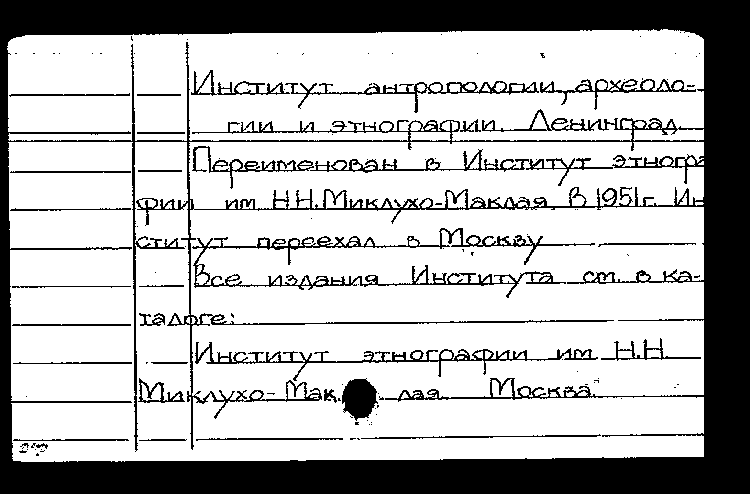 Институт антропологии, археоло-
гии и этнографии. Ленинград.
Переименован в Институт этногра
фии им. Н.Н. Миклухо-Маклая. В 1951г. Ин
ститут переехал в Москву
Все издания Института см. в ка-
талоге:
Институт этнографии им. Н.Н.
Миклухо-Мак лая. Москва.